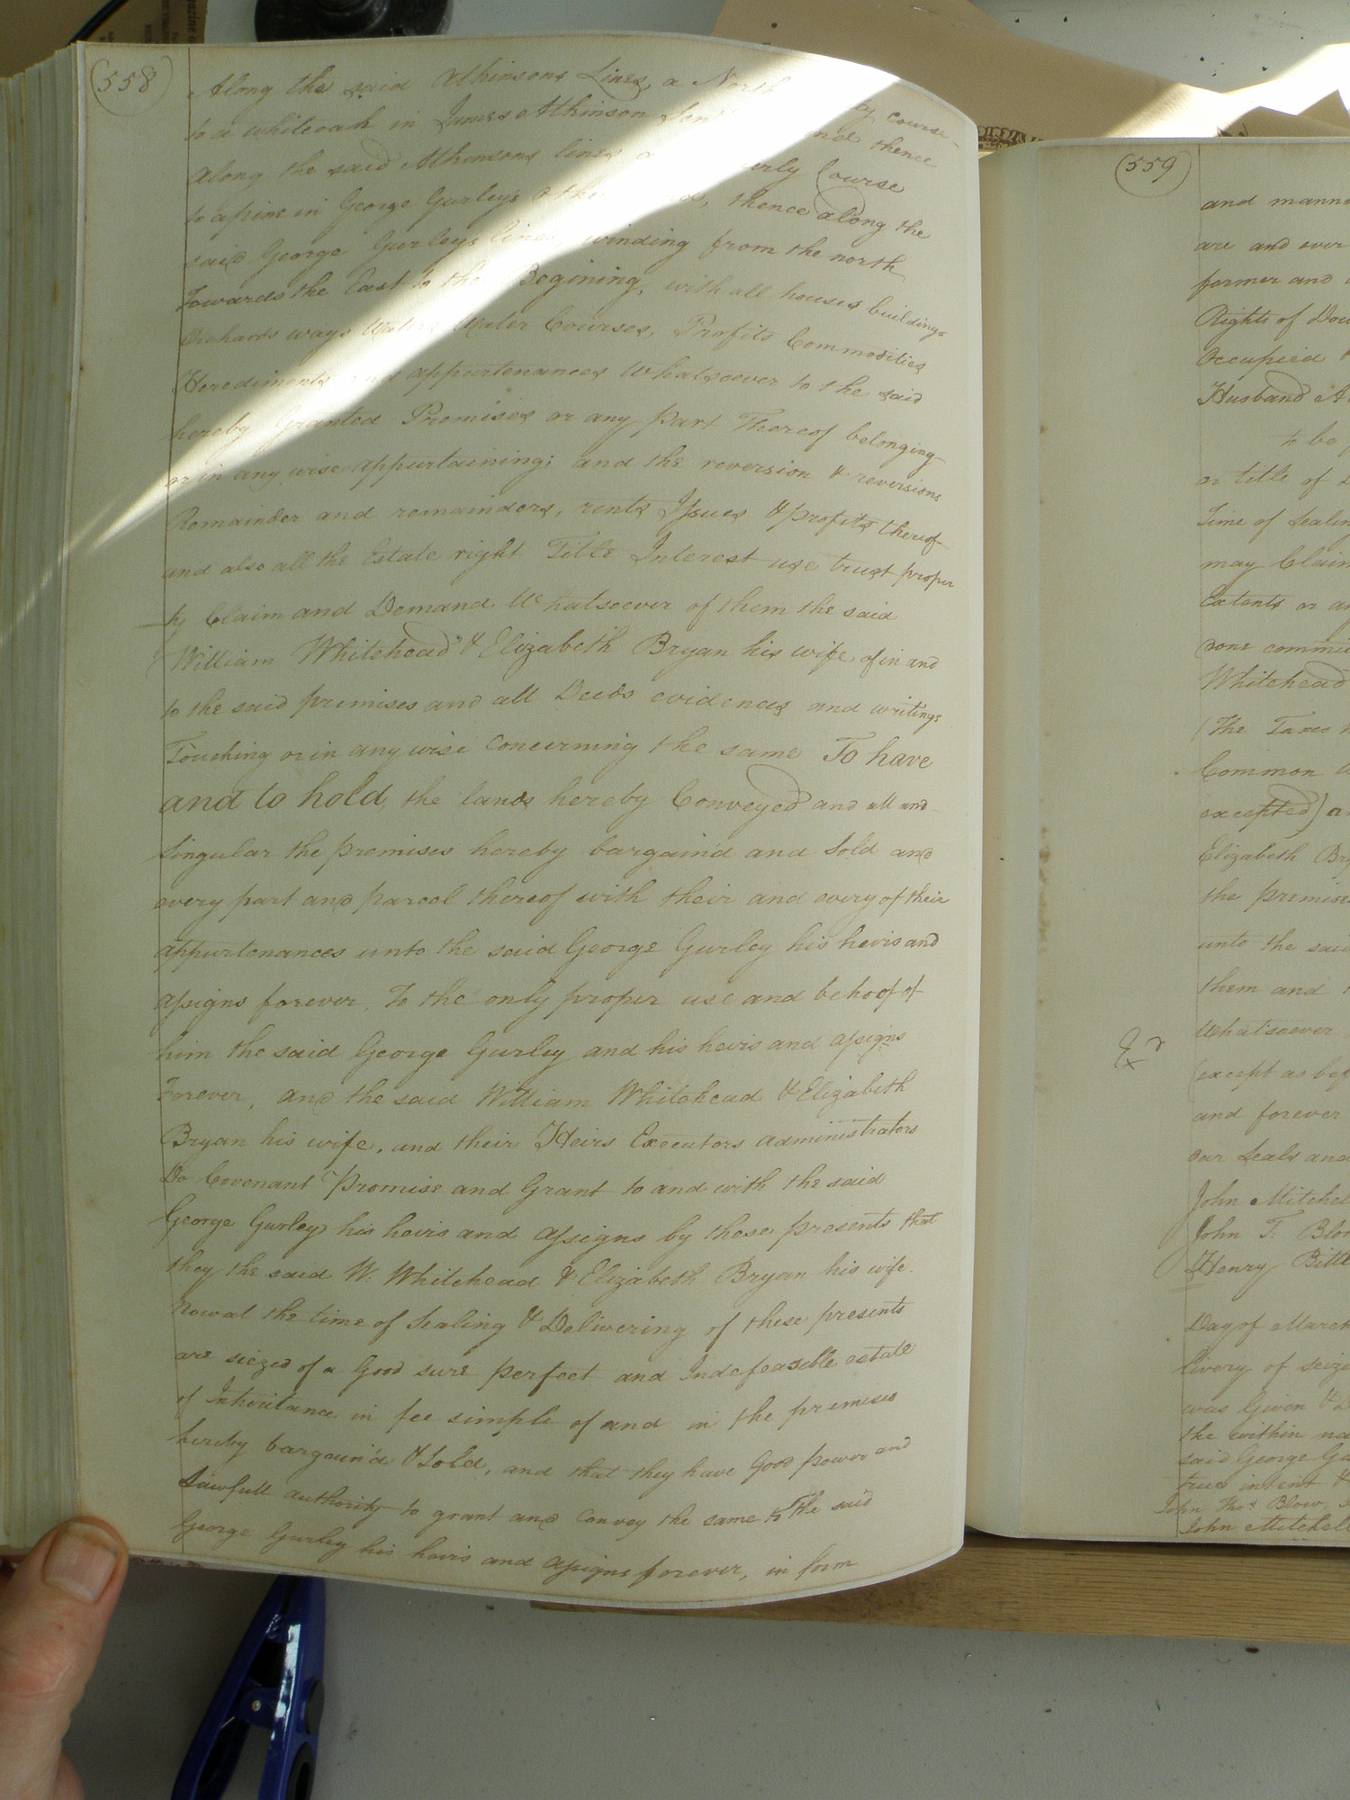 558
Along the said Atkinsons Lines, a North course
to a whiteoak in James Atkinson thence
along the said Atkinsons lines a erly Course
to a pine in George Gurleys thence along the
said George Gurleys lines winding from the north
towards the East to the Begining, with all houses buildings
Orchards ways Waters Water Courses, Profits Commodities
Herediments and appurtenances Whatsoever to the said
hereby Granted Premises or any part Thereof belonging
or in any wise appurtaining; and the reversion & reversions
Remainder and remainders, rents Issues & profits thereof
and also all the Estate right Title Interest use trust proper
ty Claim and Demand Whatsoever of them the said
William Whitehead & Elizabeth Bryan his wife, of in and
to the said premises and all Deeds evidences and writings
Touching or in any wise concerning the same To have
and to hold, the lands hereby Conveyed and all and
Singular the premises hereby bargain'd and Sold and
every part and parcel thereof with their and every of their
appurtenances unto the said George Gurley his heirs and
assigns forever, To the only proper use and behoof of
him the said George Gurley and his heirs and assigns
Forever, and the said William Whitehead & Elizabeth
Bryan his wife, and their Heirs Executors administrators
Do Covenant Promise and Grant to and with the said
George Gurley his heirs and assigns by these presents that
they the said W. Whitehead & Elizabeth Bryan his wife.
Now at the time of Sealing & Delivering of these presents
are siezed of a Good sure perfect and Indefeasible estate
of Inheritance in fee simple of and in the premises
hereby bargain'd & Sold, and that they have Good power and
Lawfull authority to grant and convey the same to the said
George Gurley his heirs and assigns forever, in form
559
and mann
are and ever
former and
Rights of Dow
Occupied
Husband
to be
or title of
Time of Sealin
may Claim
Extents or
done commi
Whitehead
(The Taxes
Common
excepted) a
Elizabeth Br
the premise
unto the sai
them and
Whatsoever
Ex
(except as bef
and forever
our Seals and
John Mitchel
John T. Blow
Henry Bitt
Day of March
livery of seize
was Given &
the within na
said George Gu
true intent &
John Thos Blow
John Mitchell